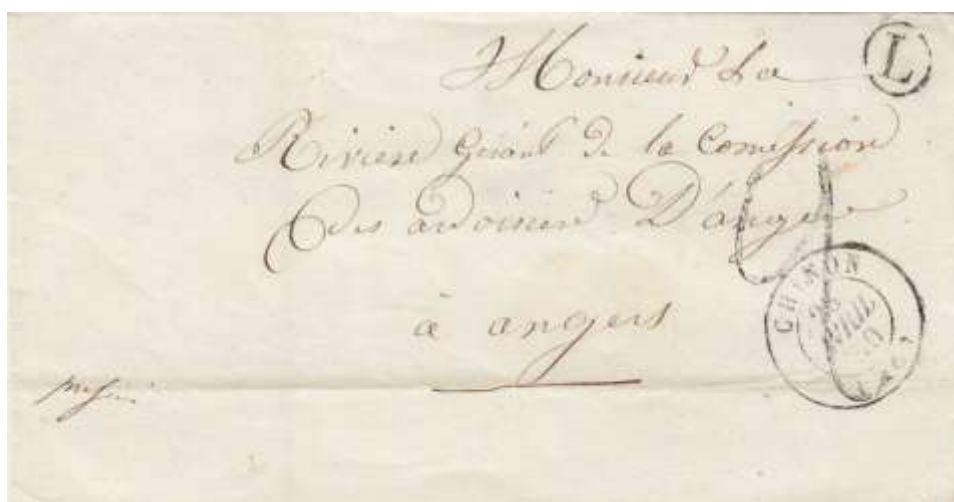 Monsieur La
L
Riviere Gérant de la Comission
des ardoisiere D'angers
à angers
CHINON
AVRIL